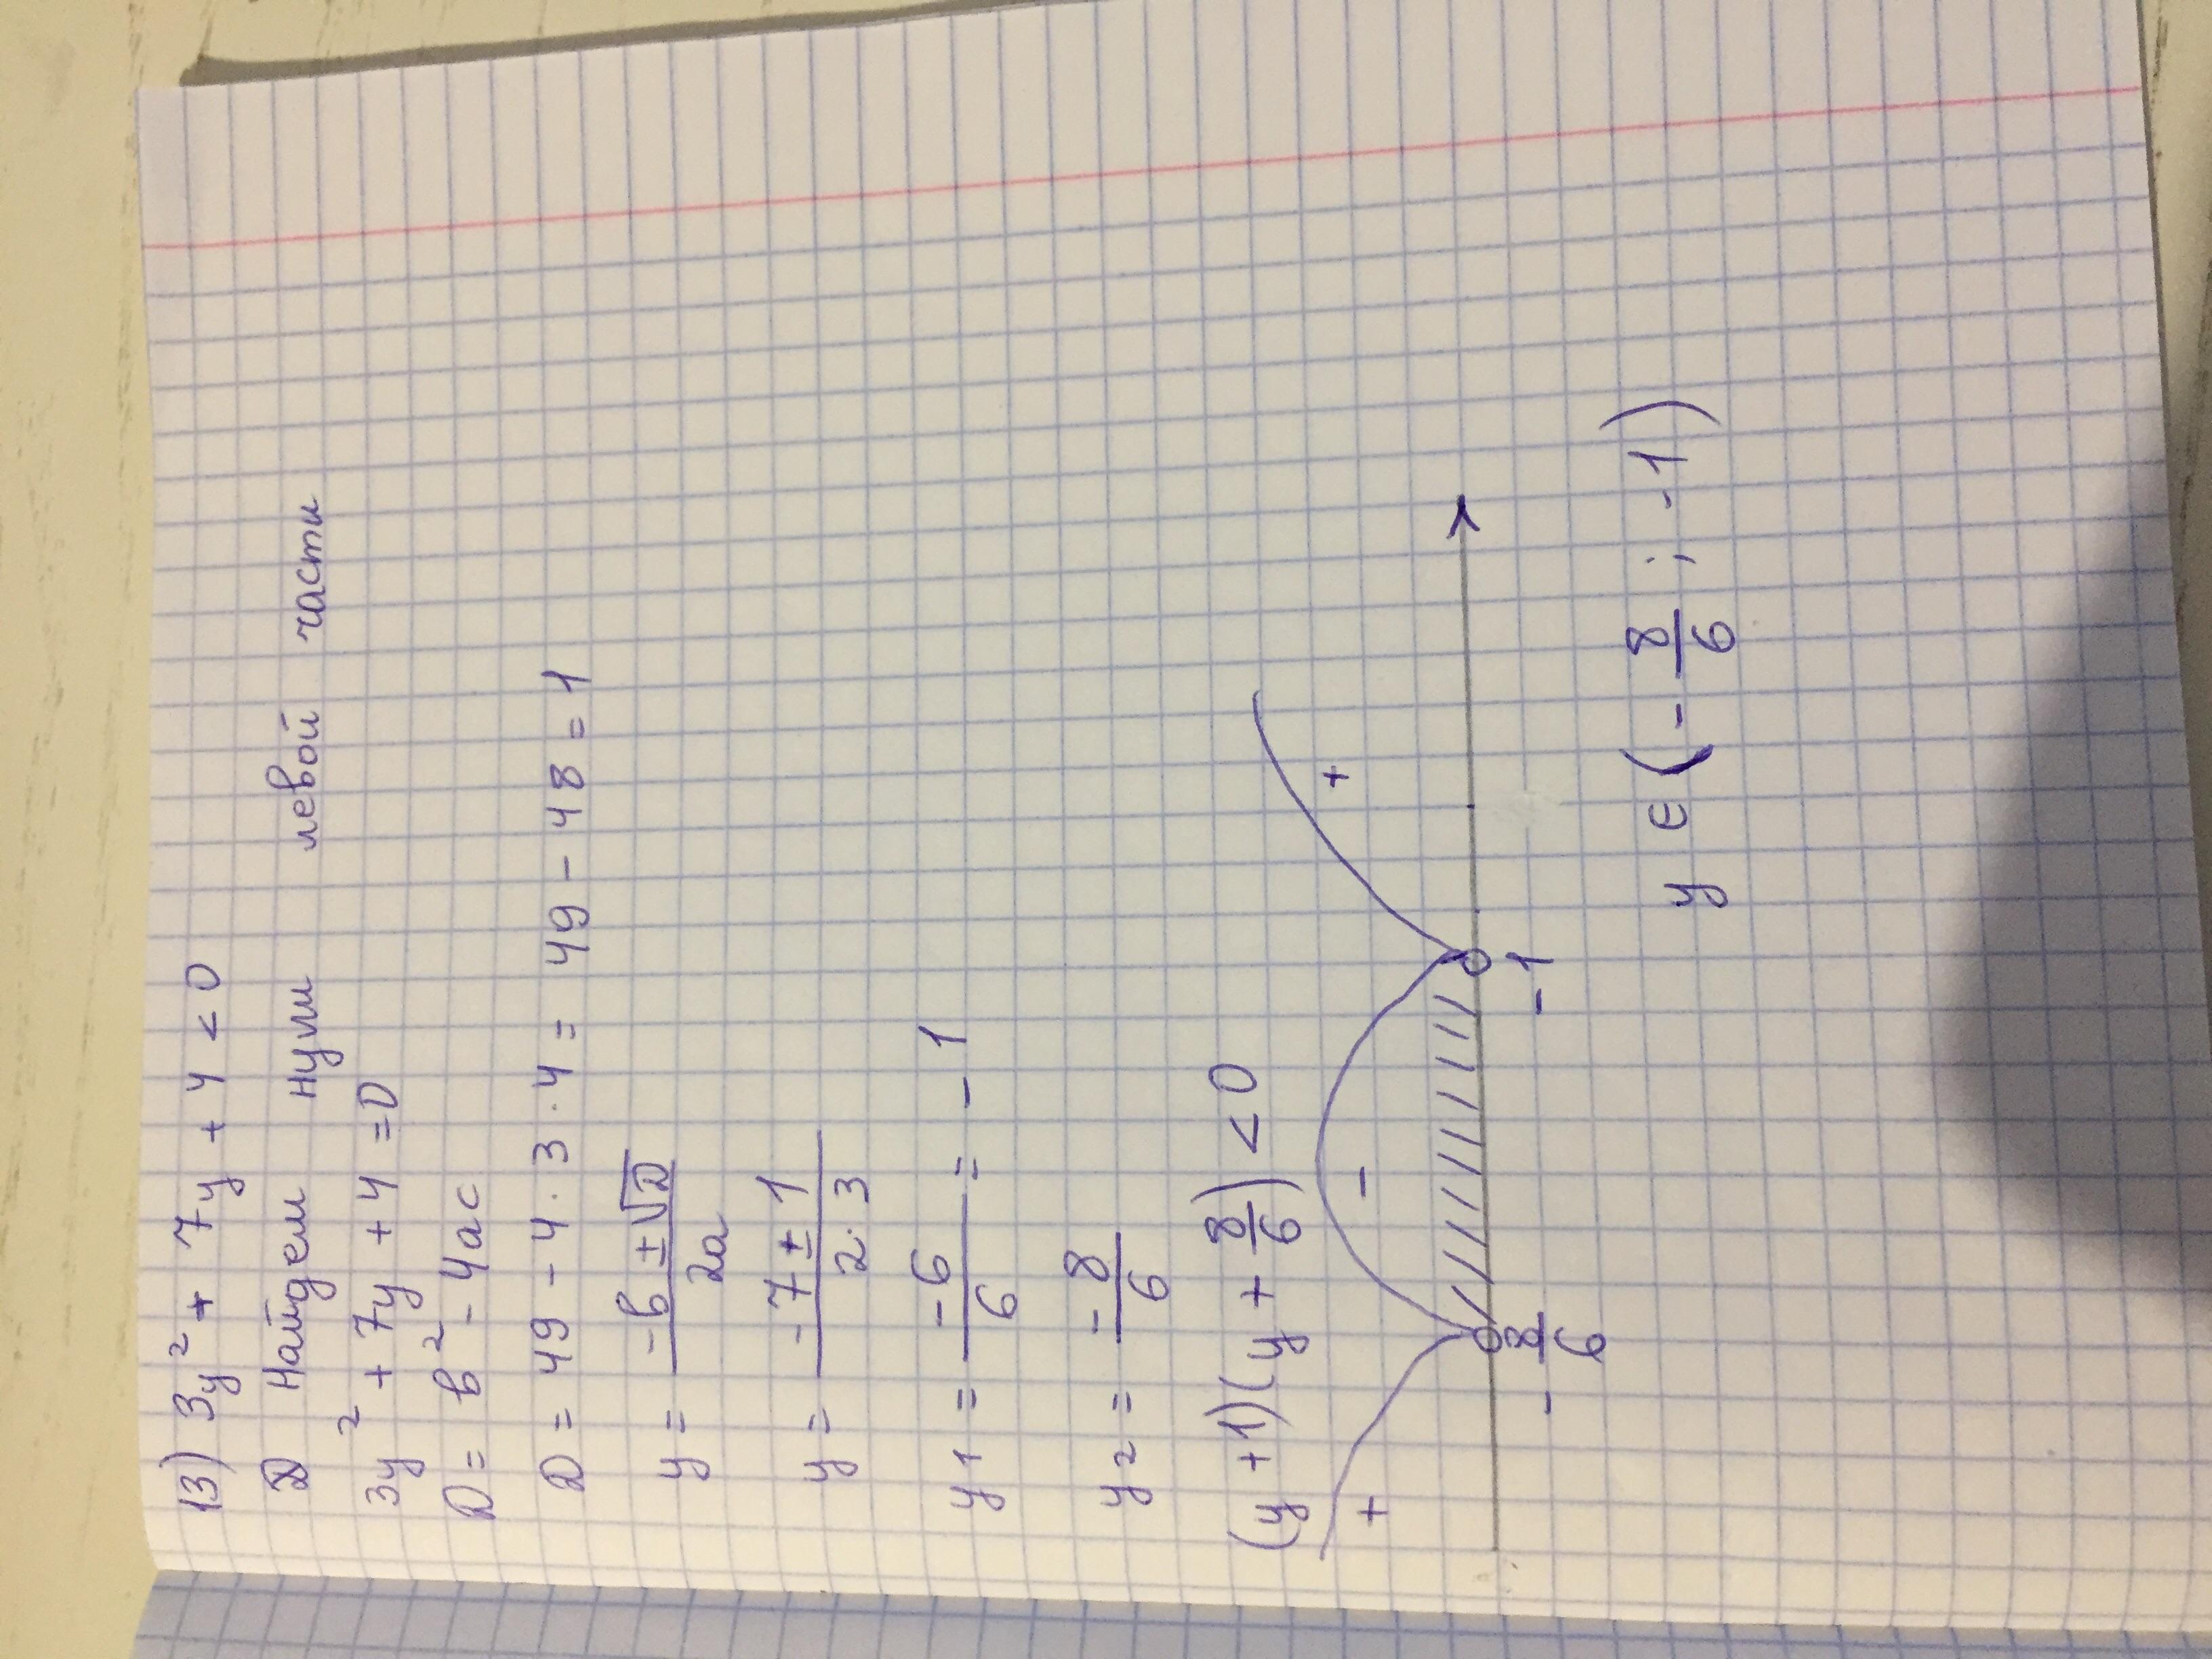 13) 3y² + 7y + 4 < 0
Найдем нули левой части
3y² + 7y + 4 = 0
D = b² - 4ac
D = 49 - 4 · 3 · 4 = 49 - 48 = 1
y = (-b ± √D) / 2a
y = (-7 ± 1) / (2·3)
y₁ = -6/6 = -1
y₂ = -8/6
(y + 1)(y + 8/6) < 0
+ - +
-8/6 -1
y ∈ (-8/6 ; -1)